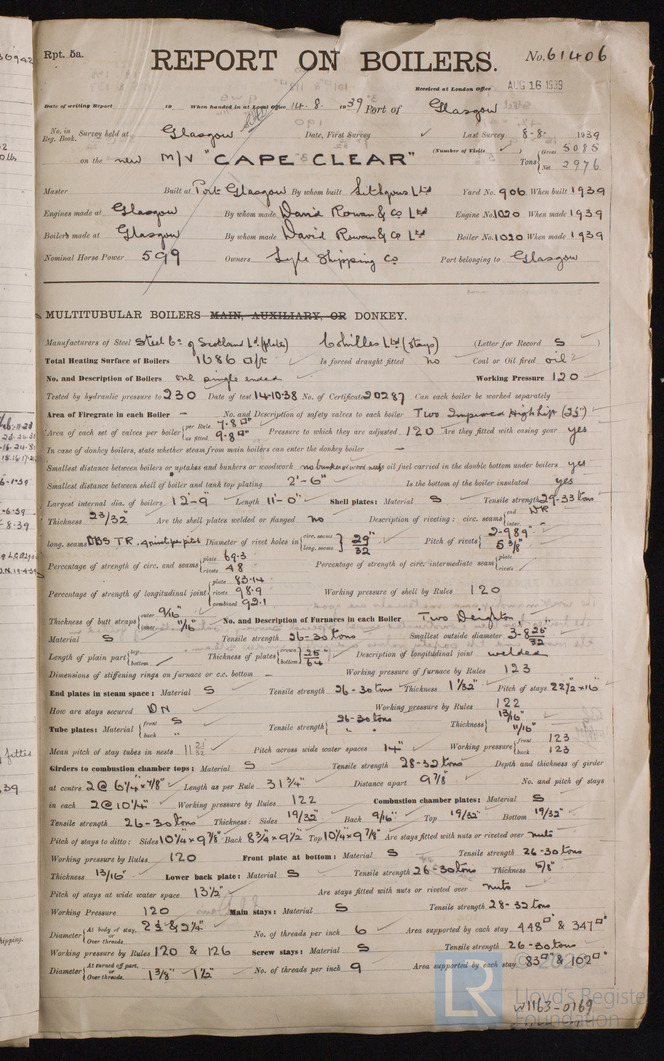 Rpt. 5a.
REPORT ON BOILERS.
No. 61406
Received at London Office AUG 16 1939
Date of writing Report 19 When handed in at Local Office 14.8. 1939 Port of Glasgow
No. in Reg. Book. Survey held at Glasgow Date, First Survey Last Survey 8-8- 1939
on the new M/V "CAPE CLEAR" (Number of Visits ) Tons { Gross 5085 Net 2976
Master Built at Port Glasgow By whom built Lithgows Ltd Yard No. 906 When built 1939
Engines made at Glasgow By whom made David Rowan & Co Ltd Engine No. 1020 When made 1939
Boilers made at Glasgow By whom made David Rowan & Co Ltd Boiler No. 1020 When made 1939
Nominal Horse Power 599 Owners Lyle Shipping Co Port belonging to Glasgow
MULTITUBULAR BOILERS MAIN, AUXILIARY, OR DONKEY.
Manufacturers of Steel Steel Co of Scotland Ld (plates) (stays) (Letter for Record S )
Total Heating Surface of Boilers 1686 Is forced draught fitted No Coal or Oil fired oil
No. and Description of Boilers one single ended Working Pressure 120
Tested by hydraulic pressure to 230 Date of test 14.10.38 No. of Certificate 20287 Can each boiler be worked separately
Area of Firegrate in each Boiler – No. and Description of safety valves to each boiler Two Improved High lift
Area of each set of valves per boiler { per Rule 7.8 □" as fitted 9.8 □" Pressure to which they are adjusted 120 Are they fitted with easing gear yes
In case of donkey boilers, state whether steam from main boilers can enter the donkey boiler –
Smallest distance between boilers or uptakes and bunkers or woodwork no bunkers or woodwork Is oil fuel carried in the double bottom under boilers yes
Smallest distance between shell of boiler and tank top plating 2'-6" Is the bottom of the boiler insulated yes
Largest internal dia. of boilers 12'-9" Length 11'-0" Shell plates: Material S Tensile strength 29-33 tons
Thickness 23/32 Are the shell plates welded or flanged No Description of riveting: circ. seams { end DR inter.
long. seams DBS TR. Diameter of rivet holes in { circ. seams long. seams } 29"/32 Pitch of rivets { 2.989" 5 3/8"
Percentage of strength of circ. end seams { plate 69.3 rivets 48 Percentage of strength of circ. intermediate seam { plate rivets
Percentage of strength of longitudinal joint { plate 83.14 rivets 98.9 combined 92.1 Working pressure of shell by Rules 120
Thickness of butt straps { outer 9/16" inner 11/16" No. and Description of Furnaces in each Boiler Two Deighton
Material S Tensile strength 26-30 tons Smallest outside diameter
Length of plain part { top bottom Thickness of plates { crown bottom } 25"/64 Description of longitudinal joint welded
Dimensions of stiffening rings on furnace or c.c. bottom – Working pressure of furnace by Rules 123
End plates in steam space: Material S Tensile strength 26-30 tons Thickness 1 1/32" Pitch of stays 22 1/2 x 16"
How are stays secured DN Working pressure by Rules 122
Tube plates: Material { front S back " Tensile strength { 26-30 tons " " Thickness { 13/16" 11/16"
Mean pitch of stay tubes in nests 11 21/32 Pitch across wide water spaces 14" Working pressure { front 123 back 123
Girders to combustion chamber tops: Material S Tensile strength 28-32 tons Depth and thickness of girder
at centre 2 @ 6 1/4" x 7/8" Length as per Rule 31 3/4" Distance apart 9 7/8" No. and pitch of stays
in each 2 @ 10 1/4" Working pressure by Rules 122 Combustion chamber plates: Material S
Tensile strength 26-30 tons Thickness: Sides 19/32" Back 9/16" Top 19/32" Bottom 19/32"
Pitch of stays to ditto: Sides 10 1/4 x 9 7/8 Back 8 3/4 x 9 1/2 Top 10 1/4 x 9 7/8 Are stays fitted with nuts or riveted over nuts
Working pressure by Rules 120 Front plate at bottom: Material S Tensile strength 26-30 tons
Thickness 13/16" Lower back plate: Material S Tensile strength 26-30 tons Thickness 5/8"
Pitch of stays at wide water space 13 1/2" Are stays fitted with nuts or riveted over nuts
Working Pressure 120 Main stays: Material S Tensile strength 28-32 tons
Diameter { At body of stay, or Over threads. No. of threads per inch 6 Area supported by each stay 448 □" & 347 □"
Working pressure by Rules 120 & 126 Screw stays: Material S Tensile strength 26-30 tons
Diameter { At turned off part, or Over threads. 1 3/8" 1 1/2" No. of threads per inch 9 Area supported by each stay 83 □" & 102 □"
Lloyd's Register
Foundation
W1163-0169